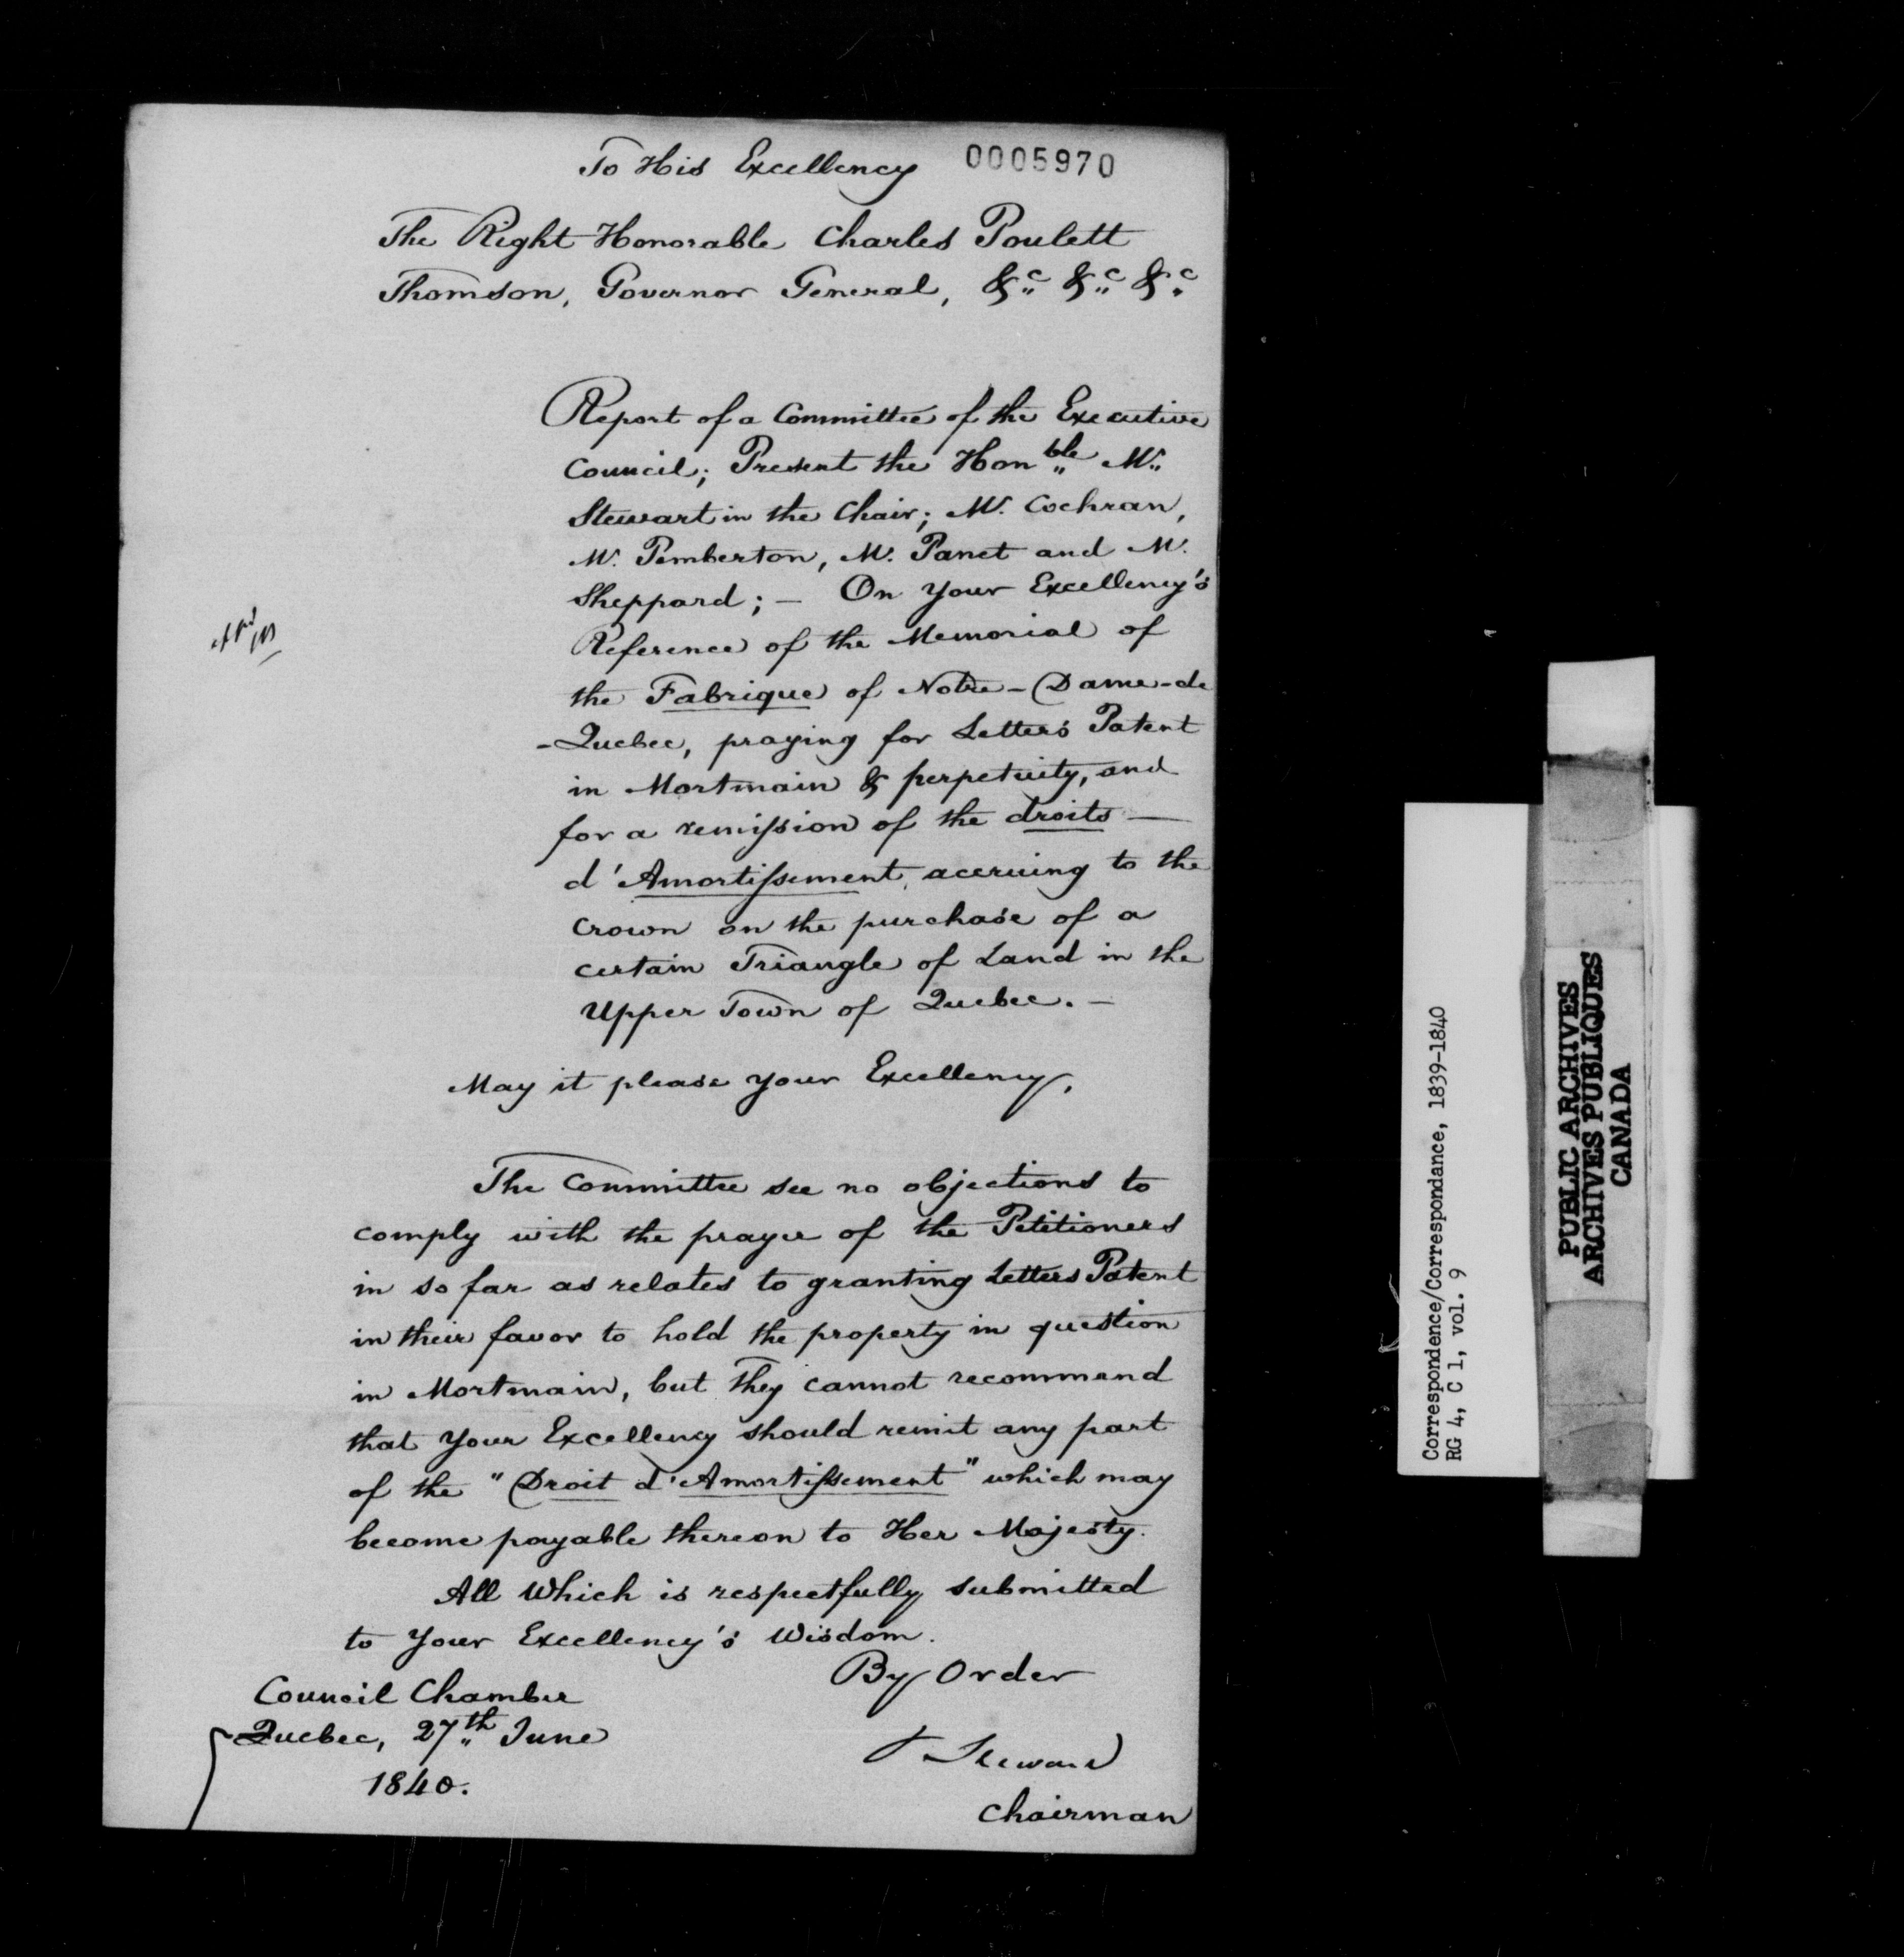 To His Excellency 0005970
The Right Honorable Charles Poulett
Thomson, Governor General, &c &c &c
Report of a Committee of the Executive
Council; Present the Honble Mr
Stewart in the Chair; Mr. Cochran,
Mr. Pemberton, Mr. Panet and Mr.
Sheppard; — On Your Excellency's
Reference of the Memorial of
the Fabrique of Notre-Dame-de
-Quebec, praying for Letters Patent
in Mortmain & perpetuity, and
for a remission of the droits —
d'Amortissement accruing to the
Crown on the purchase of a
certain Triangle of Land in the
Upper Town of Quebec. —
May it please Your Excellency,
The Committee see no objections to
comply with the prayer of the Petitioners
in so far as relates to granting Letters Patent
in their favor to hold the property in question
in Mortmain, but They cannot recommend
that Your Excellency should remit any part
of the "Droit d'Amortissement" which may
become payable thereon to Her Majesty.
All Which is respectfully submitted
to Your Excellency's Wisdom.
By Order
Council Chamber
Quebec, 27th June
1840.
Stewart
Chairman
Correspondence/Correspondance, 1839-1840
RG 4, C 1, vol. 9
PUBLIC ARCHIVES
ARCHIVES PUBLIQUES
CANADA